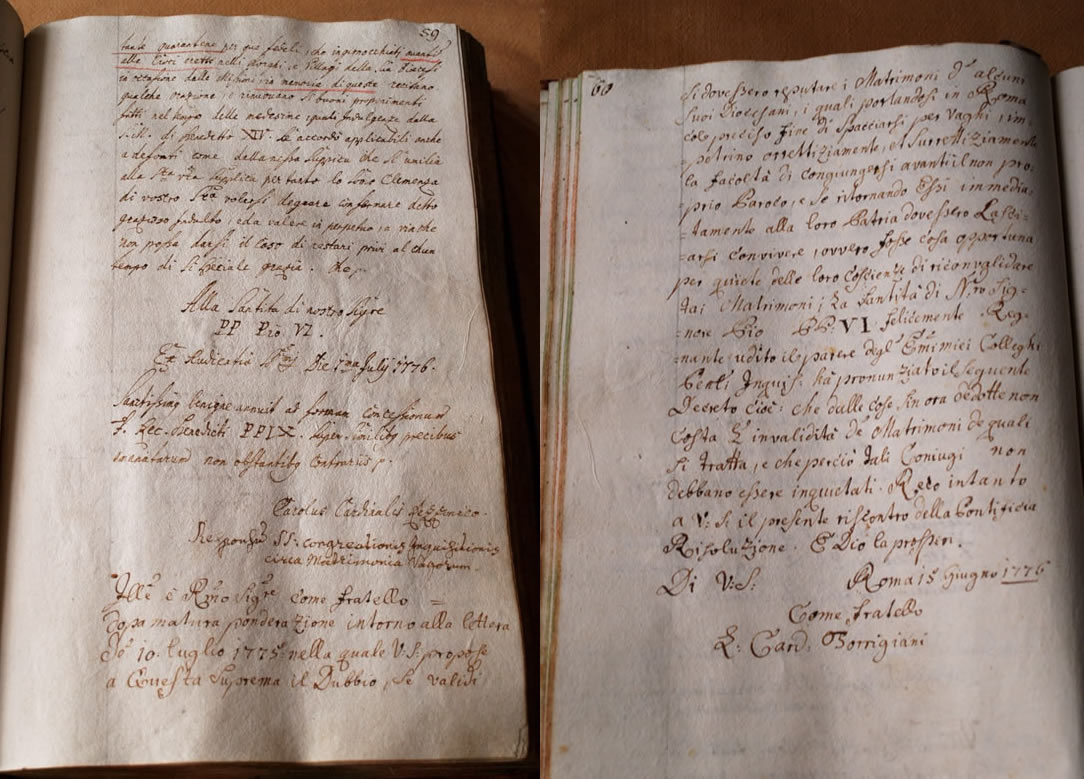 59
tante quarantene per que fedeli, che inginocchiati avanti
alle Croci erette nelli luoghi, e Villaggi della Sua Diocesi
in occasione delle Missioni in memoria di queste recitano
qualche orazione, e rinnovano li buoni proponimenti
fatti nel tempo delle medesime quali Indulgenze dalla
di Benedetto XIV. Se accordò applicabili anche
a defonti come dall'anesso Supplica che Si umilia
alla Stà vra Supplica per tanto la Somma Clemenza
di vostra Stà volersi degnare confermare detto
grazioso Indulto, e da valere in perpetuo
non possa darsi il Caso di restari privi alcun
tempo di Si speciale grazia. Che
Alla Santità di nostro Sigre
PP Pio VI.
Ex Audientia Die July 1776.
Sanctissimus benigne annuit ad formam concessionum
f. Rec. Benedicti PPIX. super similibus precibus
non obstantibus Contrariis
Carolus Cardinalis
Responsum SS: congreationis Inquisitionis
circa Matrimonia Vagorum.
Illẽ e Rmo Sigre come fratello =
Dopo matura ponderazione intorno alla lettera
10. luglio 1775. nella quale V: S: propose
a Questa Suprema il Dubbio, Se validi
60
Si dovessero reputare i Matrimoni d' alcuni
Suoi Diocesani, i quali portandosi in Roma
colo preciso fine di Spacciarsi per Vaghi, im=
=petrino orrettiziamente, et Surrettiziamente
la facoltà di congiungersi avanti il non pro=
=prio Paroco, e Se ritornando Essi immedia=
=tamente alla loro Patria dovessero Lasci=
=arsi convivere, ovvero fosse cosa opportuna
per quiete delle loro coscienze di riconvalidare
tai Matrimoni; La Santità di N:ro Sig=
=nore Pio PP: VI. felicemente Reg=
=nante udito il parere degl' Emĩ miei Colleghi
Genli Inquisi: ha pronunziato il Seguente
Decreto cioè: che dalle cose fin ora dedotte non
costa L' invalidità de' Matrimoni de quali
Si tratta, e che perciò tali Coniugi non
debbano essere inquietati. Reco intanto
a V: S: il presente riscontro della Pontificia
Risoluzione. E Dio la prosperi.
Di V: S: Roma 15 Giugno 1776
Come fratello
L: Card: Borrigiani